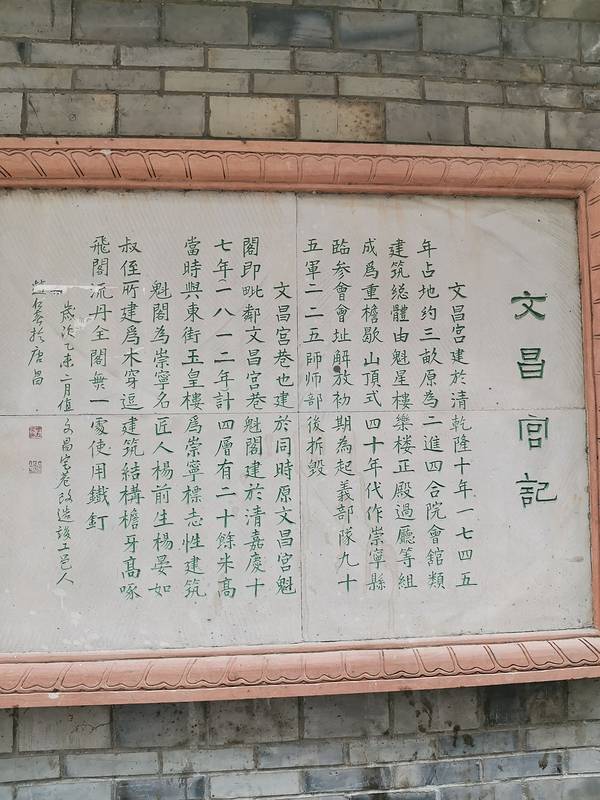 文昌宮記
文昌宮建於清乾隆十年一七四五
年占地約三畝原為二進四合院會舘類
建筑総體由魁星樓樂楼正殿過廳等組
成爲重檐歇山頂式四十年代作崇寧縣
臨参會會址解放初期為起義部隊九十
五軍二二五師師部後拆毀
文昌宮巷也建於同時原文昌宮魁
閣即毗鄰文昌宮巷魁閣建於清嘉慶十
七年一八一二年計四層有二十餘米高
當時與東街玉皇樓爲崇寧標志性建筑
魁閣為崇寧名匠人楊前生楊晏如
叔侄所建爲木穿逗建筑結構檐牙髙啄
飛閣流丹全閣無一處使用鐵釘
歲次乙未二月值文昌宮巷改造竣工邑人
於唐昌